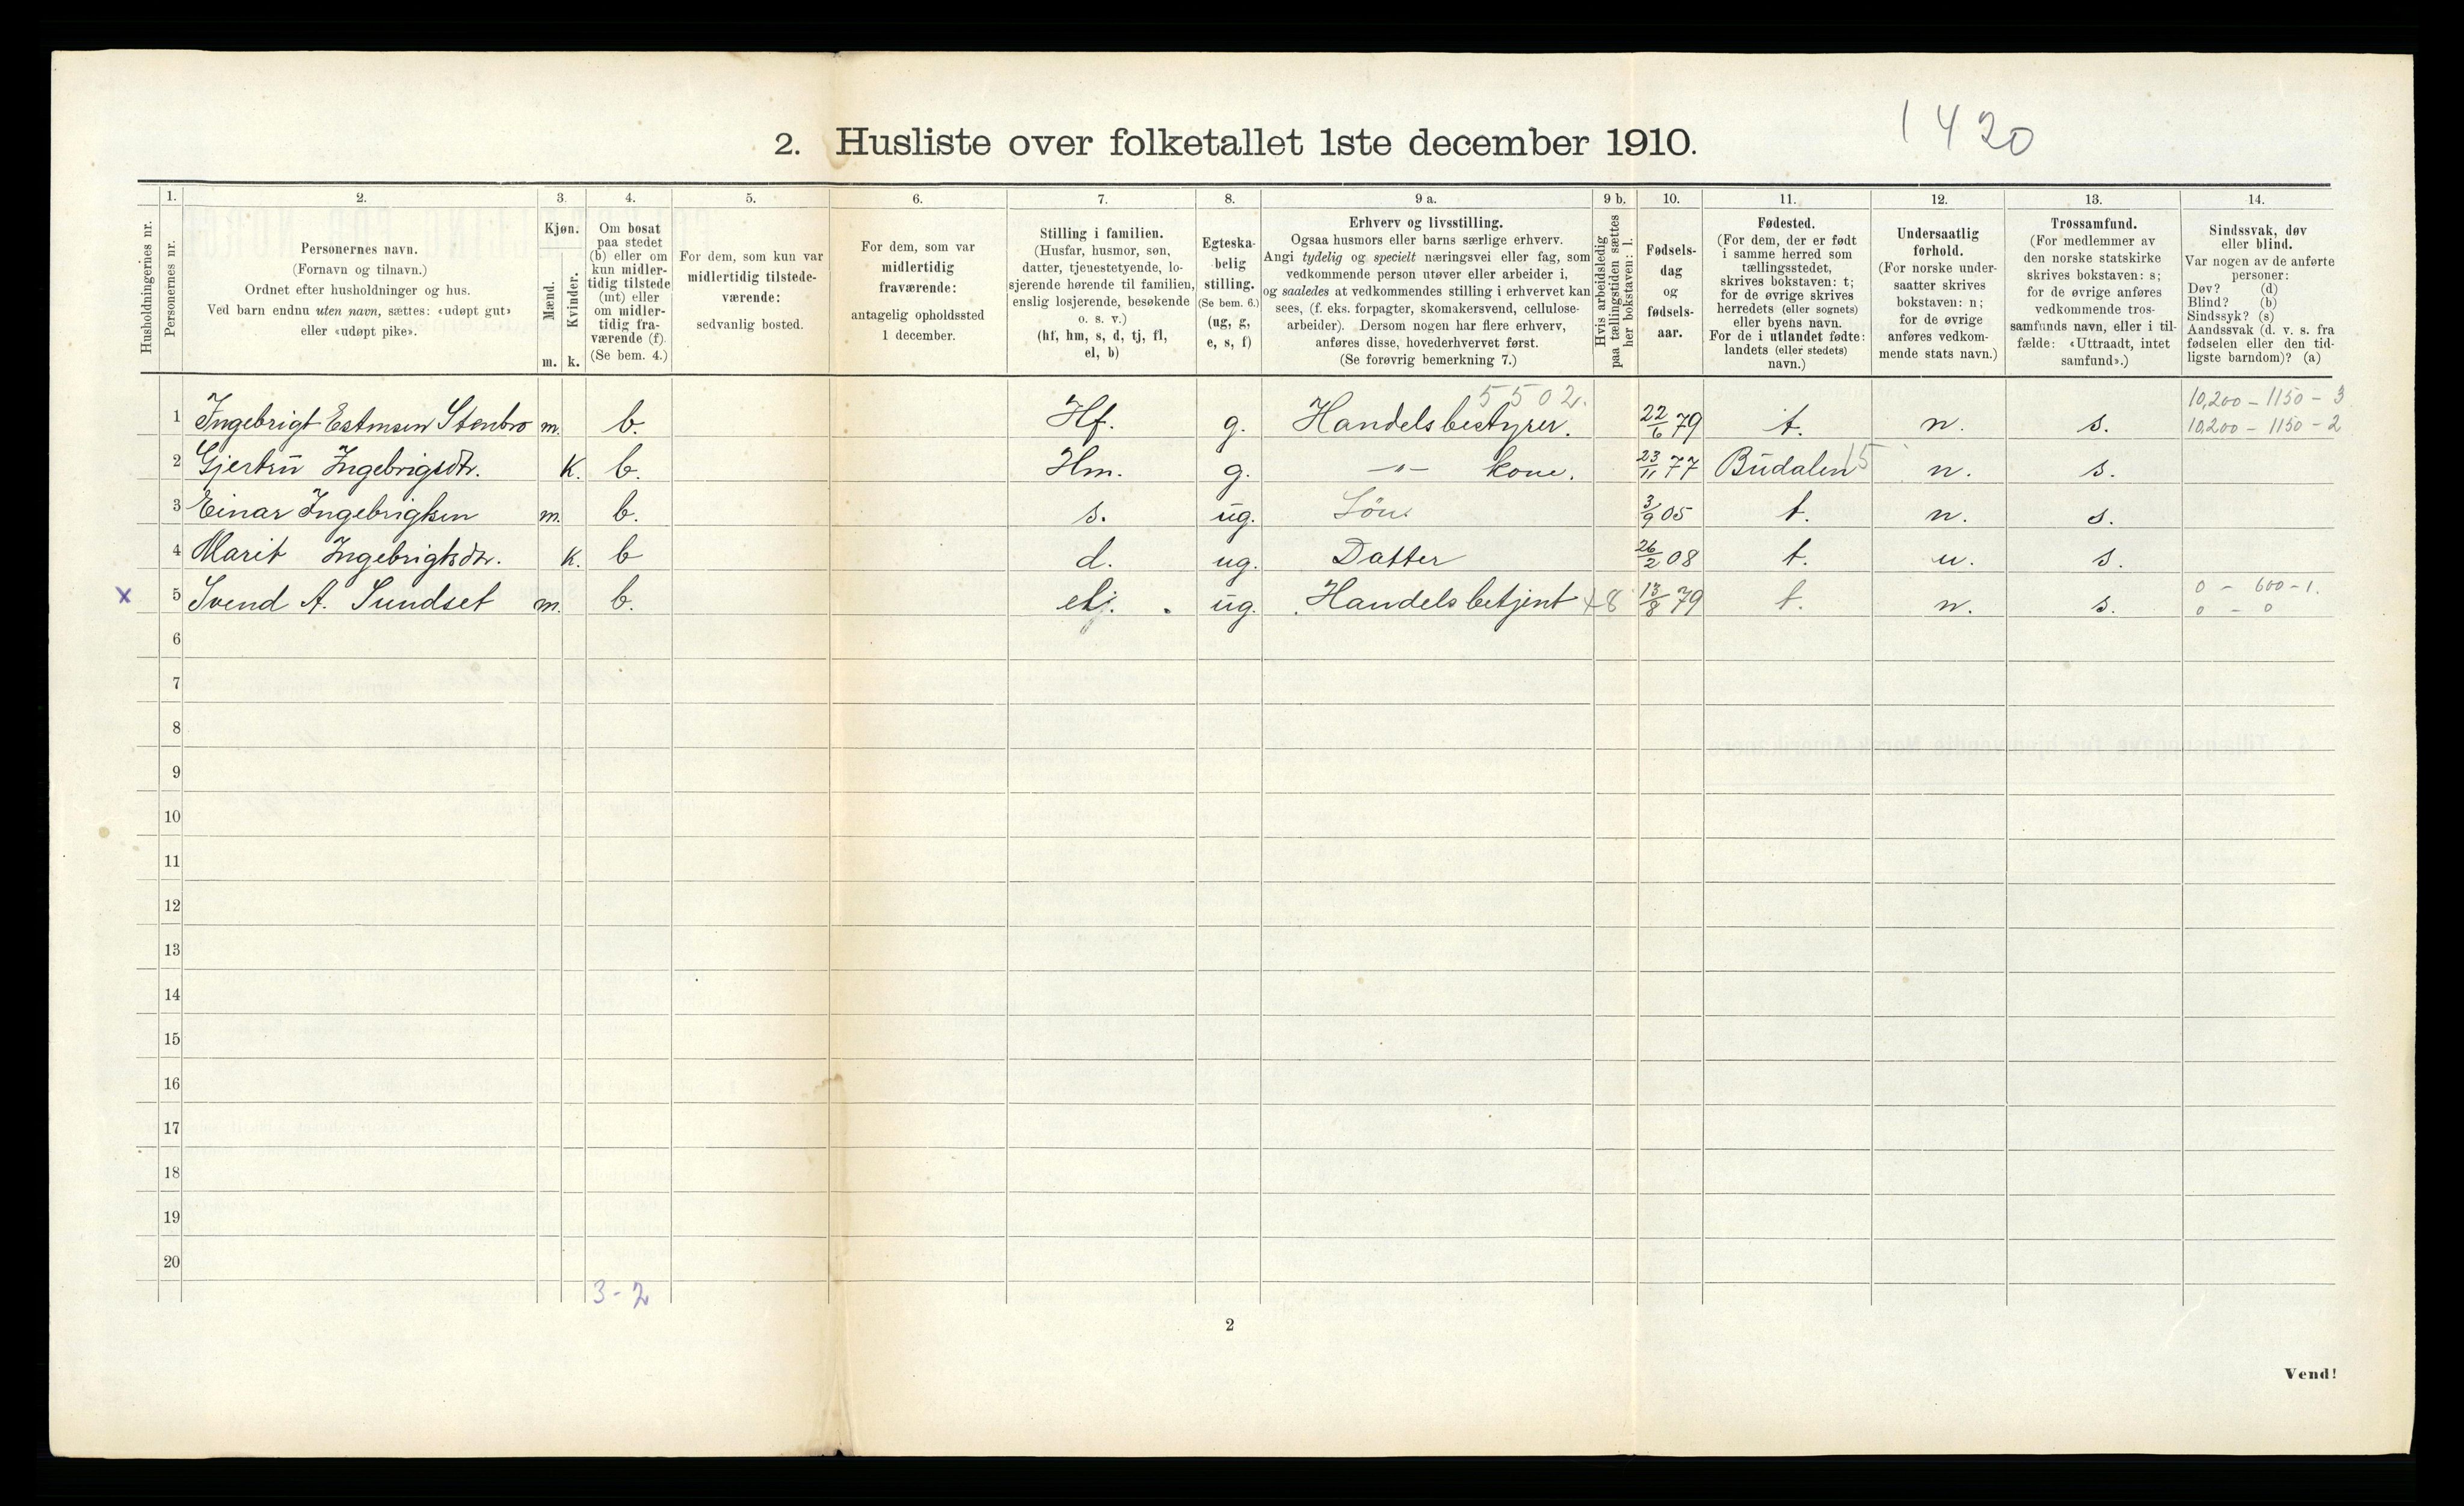 1420
2. Husliste over folketallet 1ste december 1910.
Husholdningernes nr.
1. Personernes nr.
2. Personernes navn.
(Fornavn og tilnavn.)
Ordnet efter husholdninger og hus.
Ved barn endnu uten navn, sættes: «udøpt gut»
eller «udøpt pike».
3. Kjøn.
Mænd. m.
Kvinder. k.
4. Om bosat
paa stedet
(b) eller om
kun midler-
tidig tilstede
(mt) eller
om midler-
tidig fra-
værende (f).
(Se bem. 4.)
5. For dem, som kun var
midlertidig tilstede-
værende:
sedvanlig bosted.
6. For dem, som var
midlertidig
fraværende:
antagelig opholdssted
1 december.
7. Stilling i familien.
(Husfar, husmor, søn,
datter, tjenestetyende, lo-
sjerende hørende til familien,
enslig losjerende, besøkende
o. s. v.)
(hf, hm, s, d, tj, fl,
el, b)
8. Egteska-
belig
stilling.
(Se bem. 6.)
(ug, g,
e, s, f)
9 a. Erhverv og livsstilling.
Ogsaa husmors eller barns særlige erhverv.
Angi tydelig og specielt næringsvei eller fag, som
vedkommende person utøver eller arbeider i,
og saaledes at vedkommendes stilling i erhvervet kan
sees, (f. eks. forpagter, skomakersvend, cellulose-
arbeider). Dersom nogen har flere erhverv,
anføres disse, hovederhvervet først.
(Se forøvrig bemerkning 7.)
9 b. Hvis arbeidsledig
paa tællingstiden sættes
her bokstaven: l.
10. Fødsels-
dag
og
fødsels-
aar.
11. Fødested.
(For dem, der er født
i samme herred som
tællingsstedet,
skrives bokstaven: t;
for de øvrige skrives
herredets (eller sognets)
eller byens navn.
For de i utlandet fødte:
landets (eller stedets)
navn.)
12. Undersaatlig
forhold.
(For norske under-
saatter skrives
bokstaven: n;
for de øvrige
anføres vedkom-
mende stats navn.)
13. Trossamfund.
(For medlemmer av
den norske statskirke
skrives bokstaven: s;
for de øvrige anføres
vedkommende tros-
samfunds navn, eller i til-
fælde: «Uttraadt, intet
samfund».)
14. Sindssvak, døv
eller blind.
Var nogen av de anførte
personer:
Døv? (d)
Blind? (b)
Sindssyk? (s)
Aandssvak (d. v. s. fra
fødselen eller den tid-
ligste barndom)? (a)
5502. 10,200 - 1150 - 3
1 Ingebrigt Estensen Stenbro m. b. Hf. g. Handelsbestyrer. 22/6 79 t. n. s. 10,200 - 1150 - 2
2 Gjertrū Ingebrigsdtr. K. b. Hm. g. -"- kone. 23/11 77 Būdalen 15 n. s.
3 Einar Ingebrigtsen m. b. s. ūg. Sön. 3/9 05 t. n. s.
4 Marit Ingebrigtsdtr. K. b d. ug. Datter 26/2 08 t. n. s.
0 - 600 - 1.
x 5 Svend A. Sundset m. b. ūg. Handelsbetjent +8 13/8 79 t. n. s. 0 - 0
6
7
8
9
10
11
12
13
14
15
16
17
18
19
20
3 - 2
2
Vend!